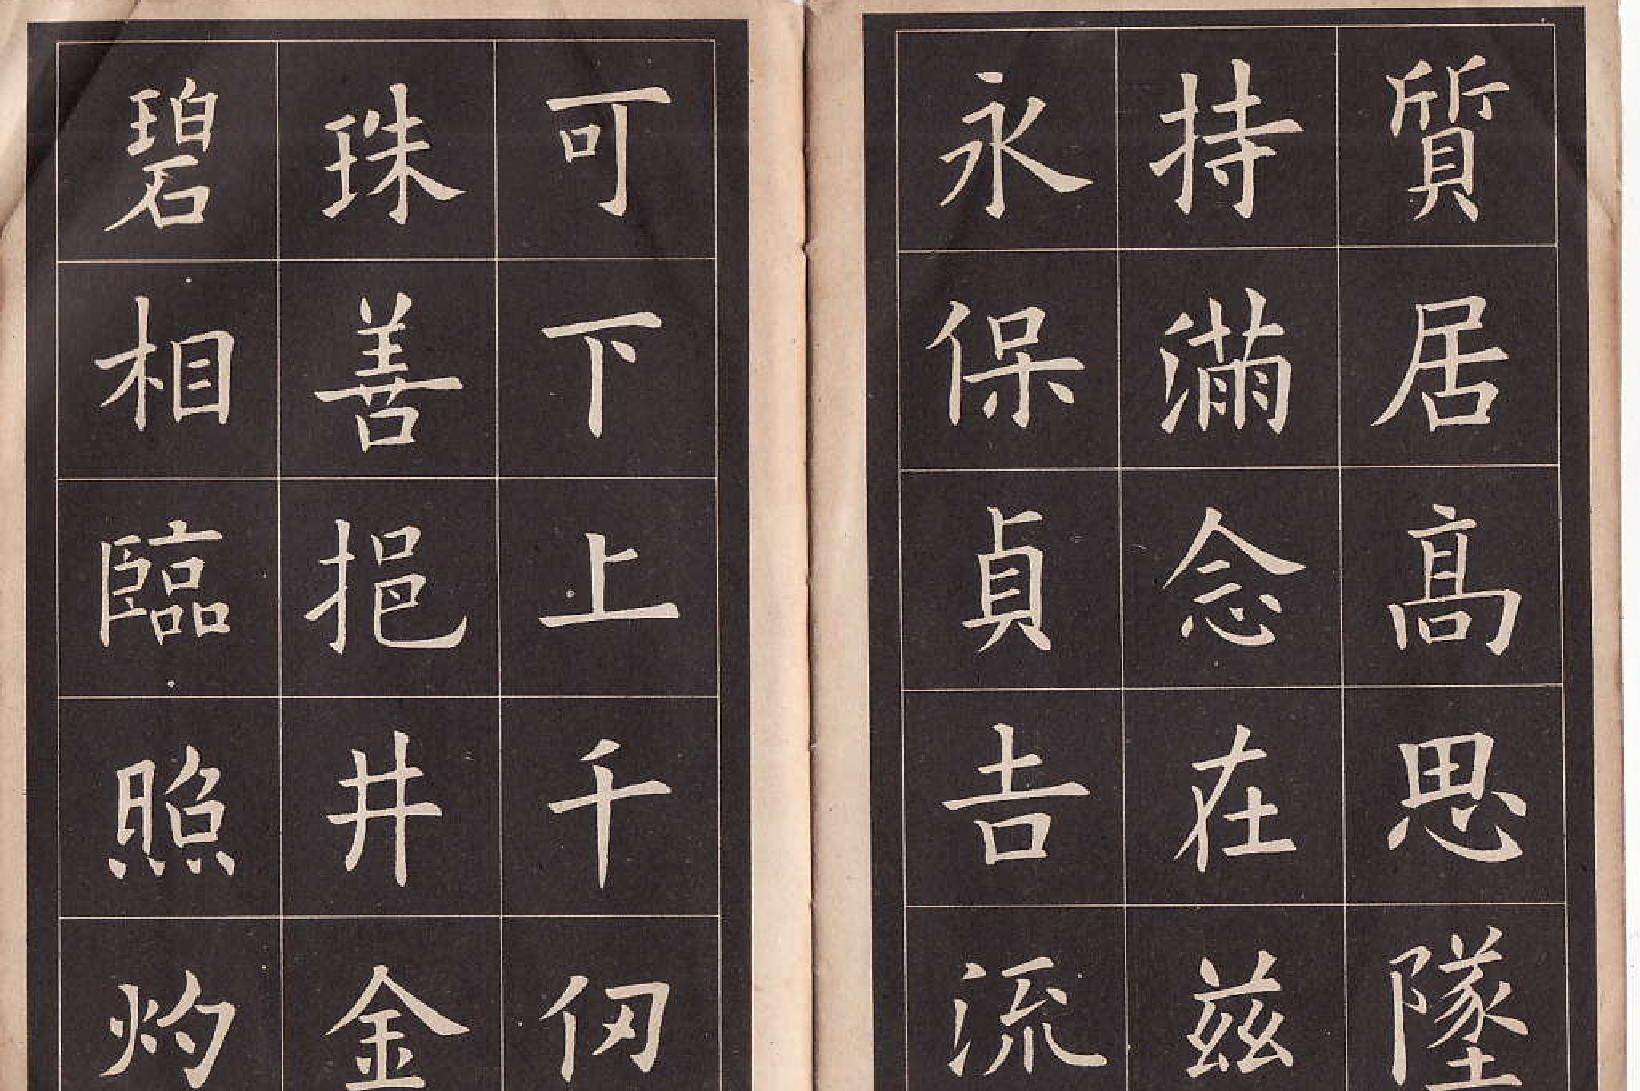 質居髙思墜
持滿念在茲
永保貞𠮷流
可下上千仞
珠善挹井金
碧相臨照灼